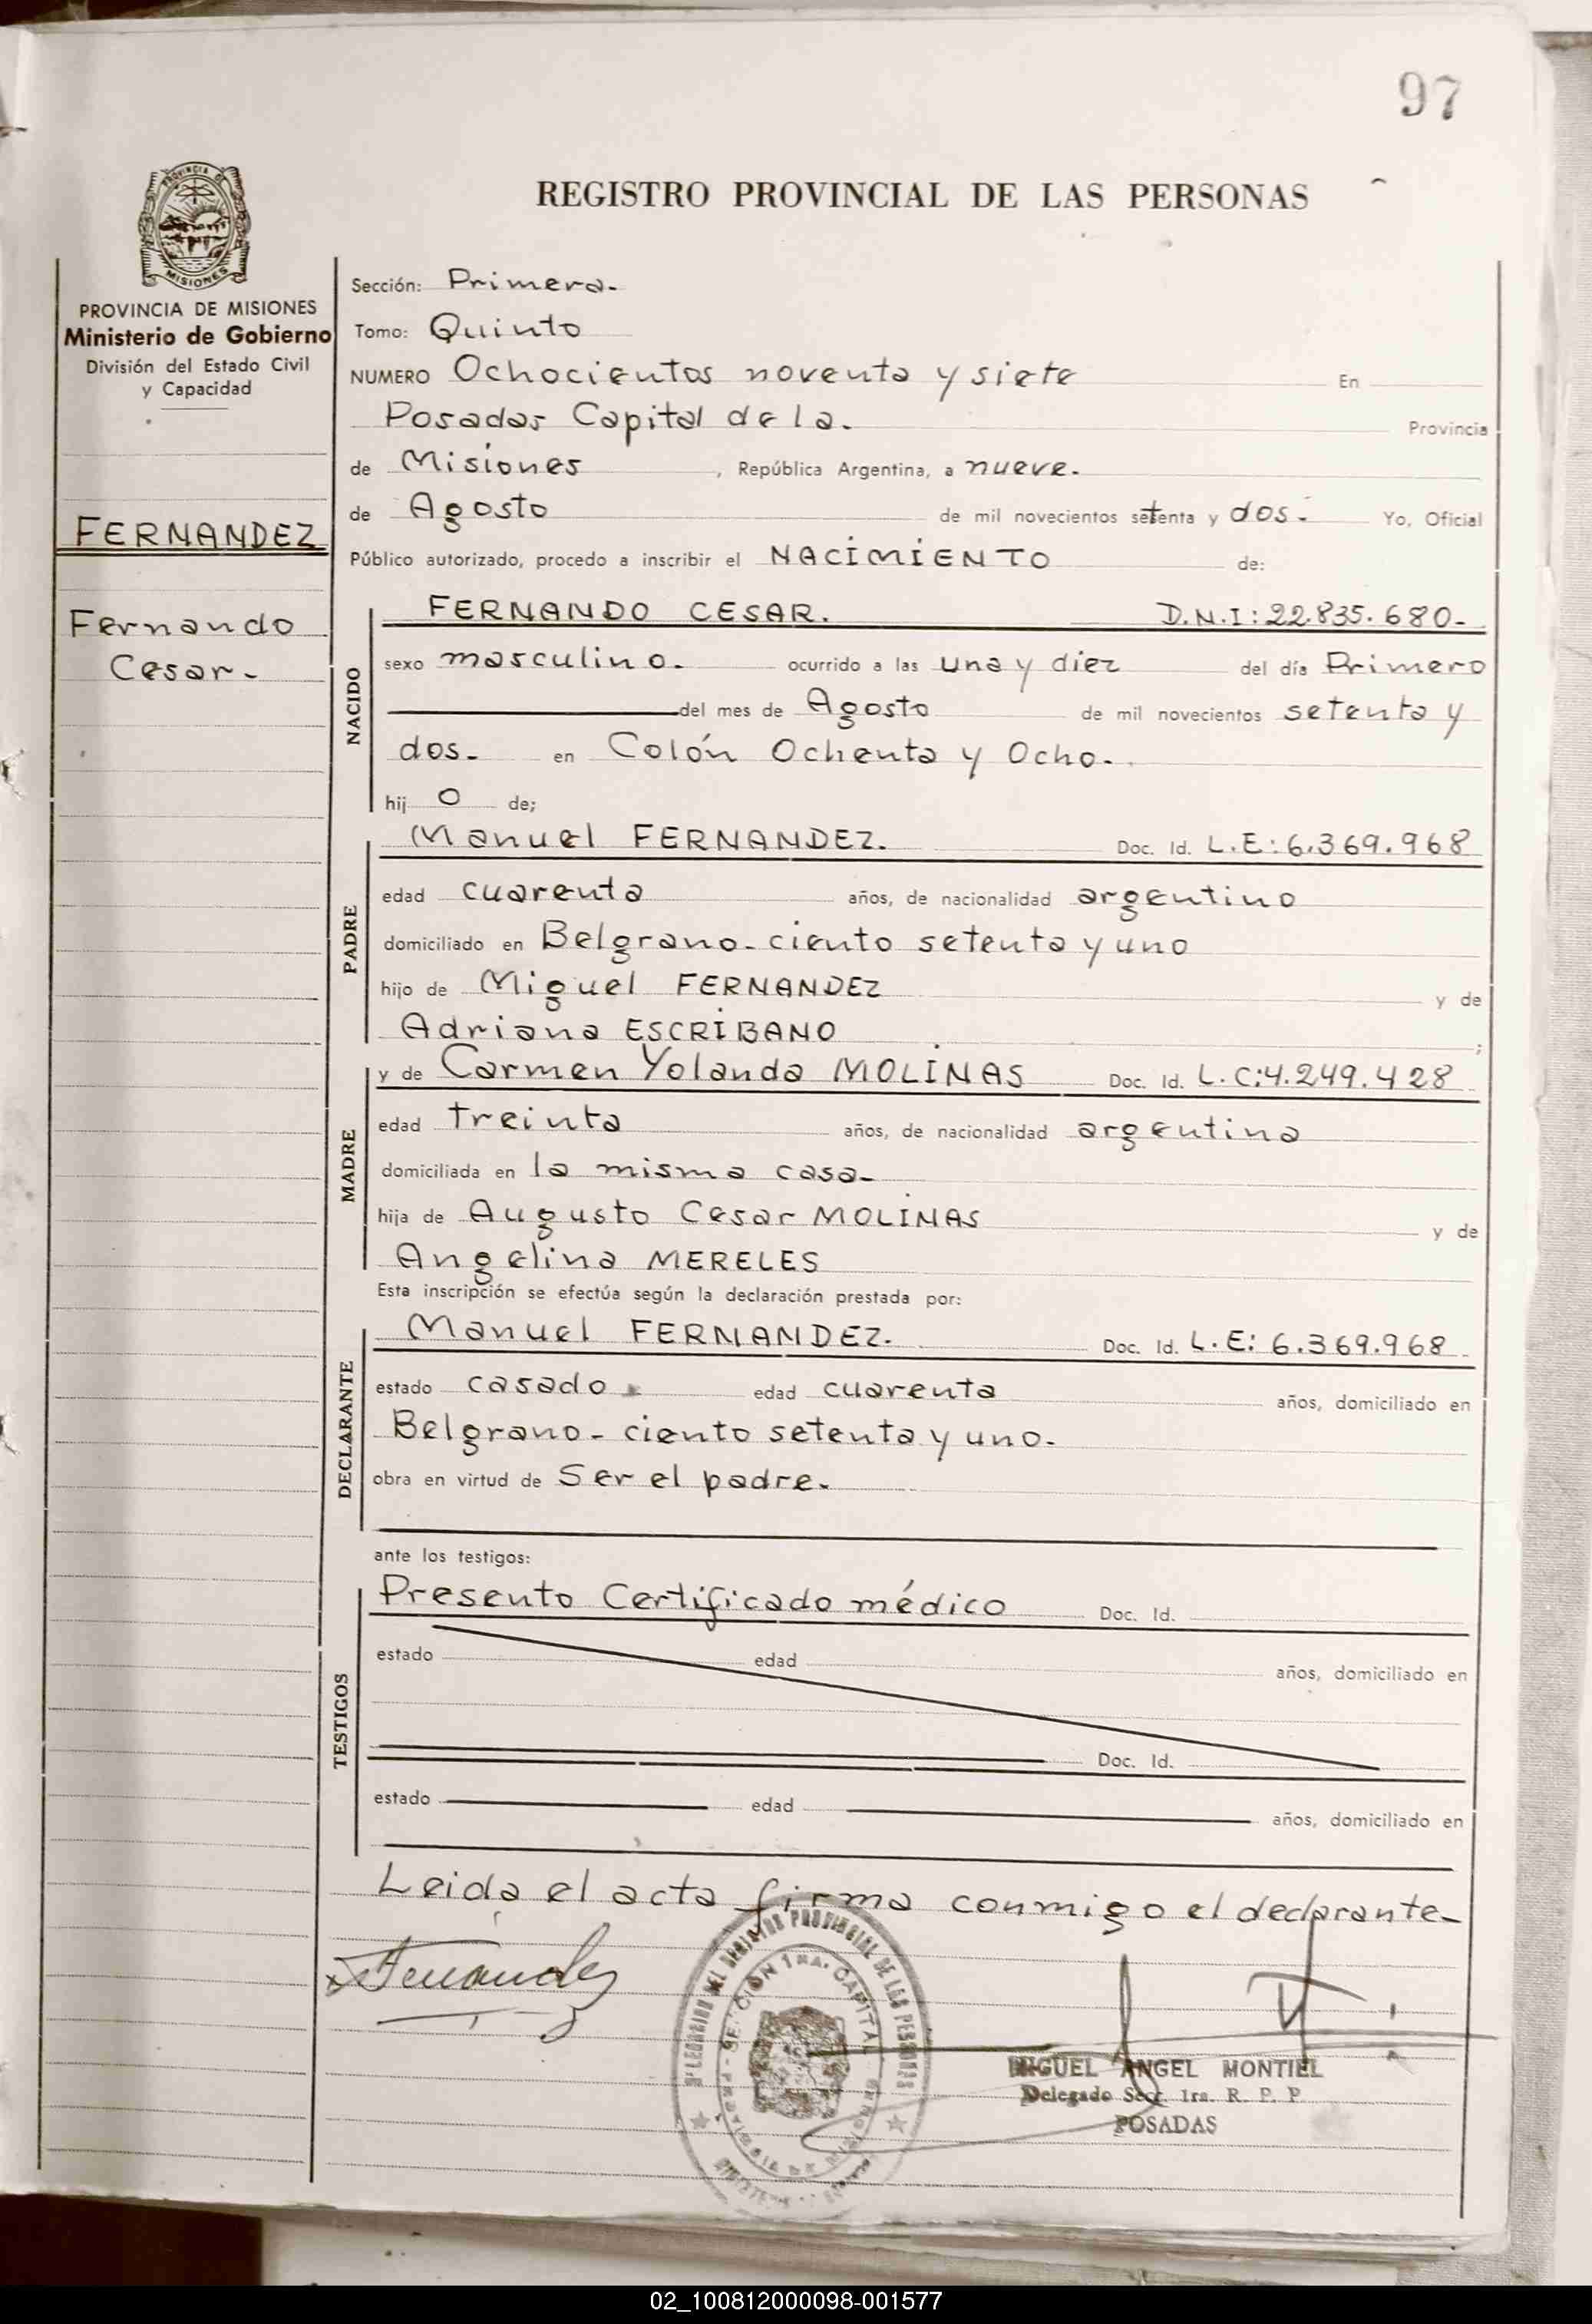 97
REGISTRO PROVINCIAL DE LAS PERSONAS
PROVINCIA DE
MISIONES
PROVINCIA DE MISIONES
Ministerio de Gobierno
División del Estado Civil
y Capacidad
FERNANDEZ
Fernando
Cesar-
Sección: Primera-
Tomo: Quinto
NUMERO Ochocientos noventa y siete En
Posadas Capital de la. Provincia
de Misiones, República Argentina, a nueve.
de Agosto de mil novecientos setenta y dos.- Yo, Oficial
Público autorizado, procedo a inscribir el NACIMIENTO de:
NACIDO
FERNANDO CESAR. D.N.I: 22.835.680-
sexo masculino- ocurrido a las una y diez del día Primero
del mes de Agosto de mil novecientos setenta y
dos- en Colón Ochenta y Ocho-.
hij o de;
PADRE
Manuel FERNANDEZ. Doc. Id. L.E: 6.369.968
edad cuarenta años, de nacionalidad argentino
domiciliado en Belgrano- ciento setenta y uno
hijo de Miguel FERNANDEZ y de
Adriana ESCRIBANO ;
MADRE
y de Carmen Yolanda MOLINAS Doc. Id. L.C:4.249.428
edad treinta años, de nacionalidad argentina
domiciliada en la misma casa-
hija de Augusto Cesar MOLINAS y de
Angelina MERELES
Esta inscripción se efectúa según la declaración prestada por:
DECLARANTE
Manuel FERNANDEZ. Doc. Id. L.E: 6.369.968
estado casado edad cuarenta años, domiciliado en
Belgrano- ciento setenta y uno-
obra en virtud de Ser el padre-
ante los testigos:
TESTIGOS
Presento Certificado médico Doc. Id.
estado edad años, domiciliado en
Doc. Id.
estado edad años, domiciliado en
Leida el acta firma conmigo el declarante-
Fernandez
DEL REGISTRO PROVINCIAL DE LAS PERSONAS
SECCION 1RA. CAPITAL
MIGUEL ANGEL MONTIEL
Delegado Secc. 1ra. R. P. P.
POSADAS
02_100812000098-001577